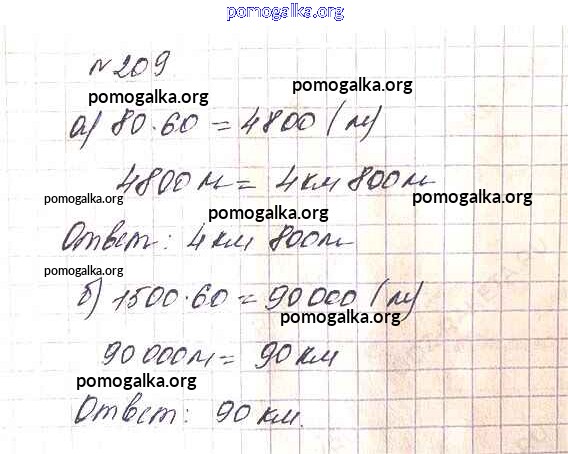 pomogalka.org
№209.
pomogalka.org
pomogalka.org
а) 80·60 = 4800 (м)
4800м = 4км 800м
pomogalka.org
pomogalka.org
pomogalka.org
Ответ: 4км 800м
pomogalka.org
б) 1500·60 = 90000 (м)
pomogalka.org
90 000м = 90 км
pomogalka.org
Ответ: 90 км.